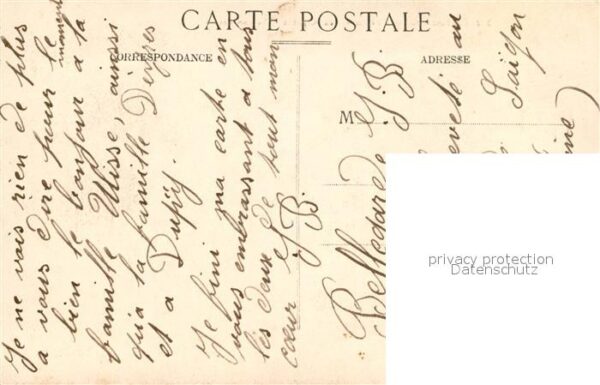 CARTE POSTALE
CORRESPONDANCE
ADRESSE
Je ne vais rien de plus
a vous dire pour le
moment
bien le bonjour a la
famille Ulisse, ainsi
qu'a la famille
et a Dupuy.
Je fini ma carte en
vous embrassant a tous
les deux de tout mon
cœur J B
M J. B.
Belle
au
Saigon
privacy protection
Datenschutz